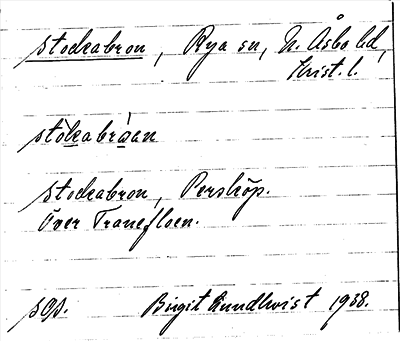 Stockabron, Rya sn, N. Åsbo hd,
Krist. l.
stòkabrö́an
Stockabron, Perstorp.
Över Tranefloen.
sOs. Birgit Lundkvist 1938.